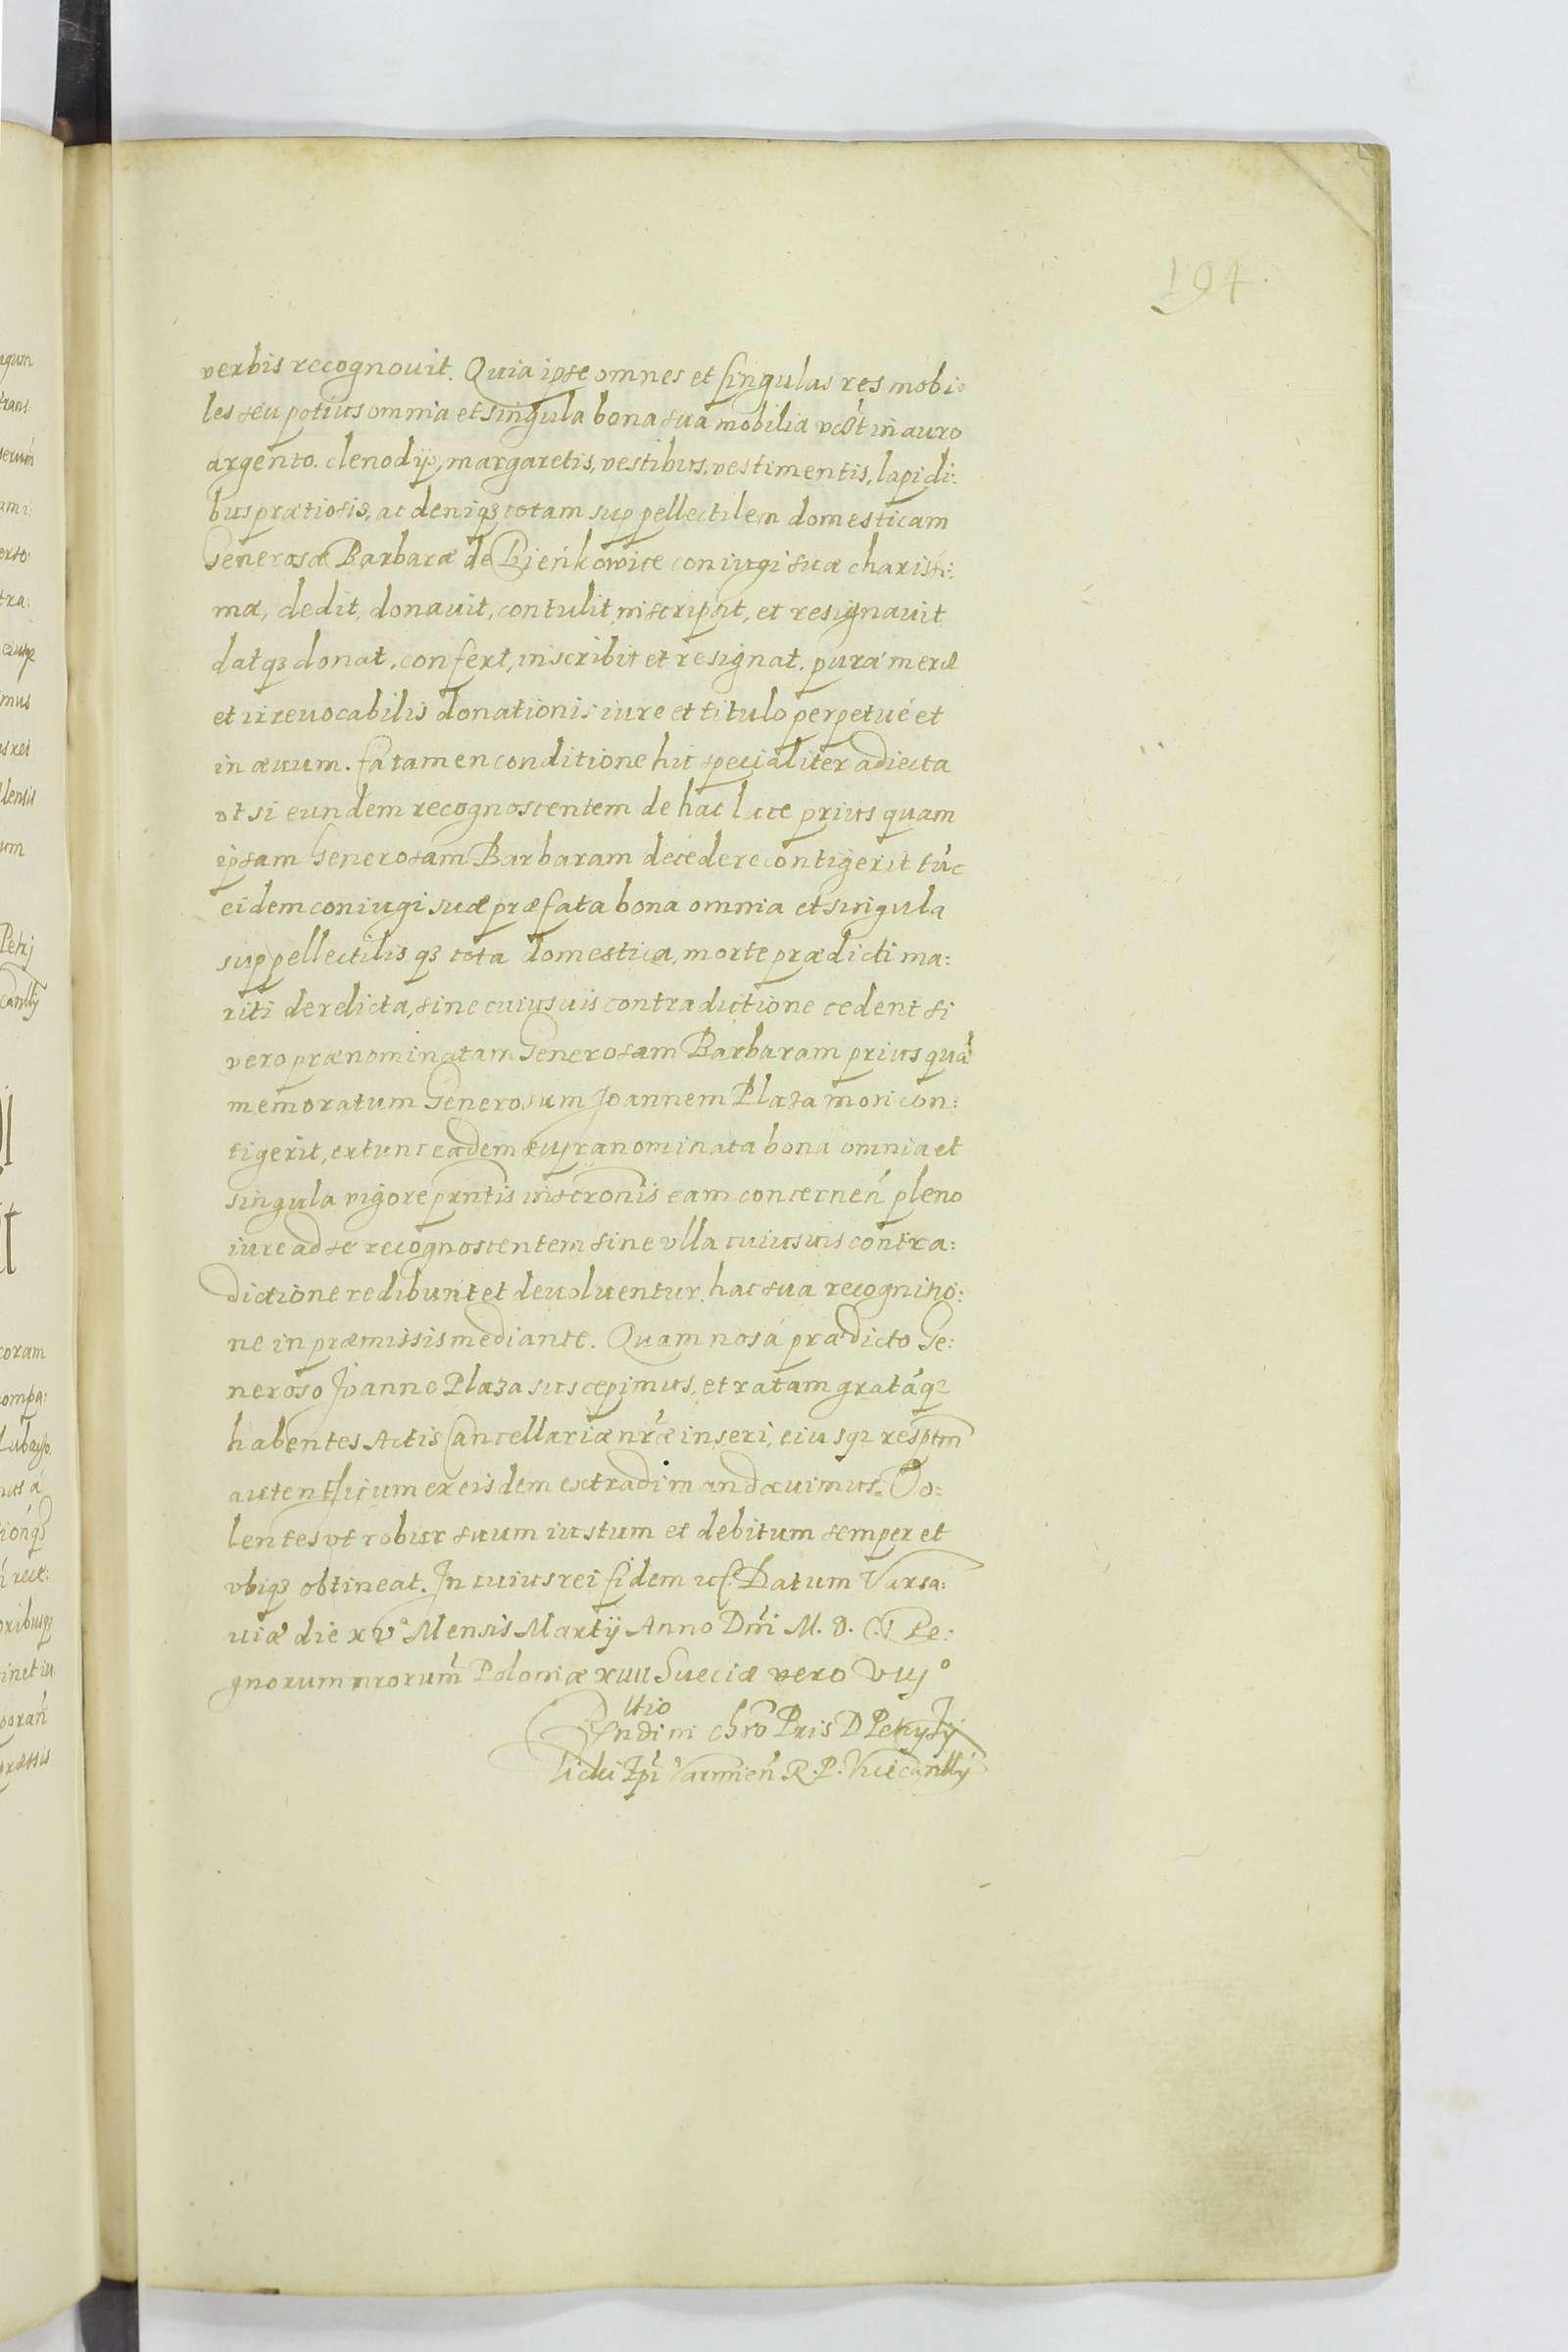 194.
verbis recognouit. Quia ipse omnes et singulas res mobi:
les seu potius omnia et singula bona sua mobilia vdt in auro
argento. clenodijs, margaretis, vestibus, vestimentis, lapidi:
bus prætiosis, ac deniq3 totam suppellectilem domesticam
Generosæ Barbaræ de Bieńkowice coniugi suæ charissi:
mæ, dedit, donauit, contulit, inscripsit, et resignauit
datq3 donat, confert, inscribit et resignat. puræ meræ
et irreuocabilis donationis iure et titulo perpetué et
in æuum. Ea tamen conditione hic specialiter adiecta
vt si eundem recognoscentem de hac luce prius quam
ipsam Generosam Barbaram decedere contigerit túc
eidem coniugi suæ præfata bona omnia et singula
suppellectilis q3 tota domestica, morte prædicti ma:
riti derelicta, sine cuiusuis contradictione cedent si
vero prænominatam Generosam Barbaram prius quá
memoratum Generosum Joannem Plaza mori con:
tigerit, extunc eadem supranominata bona omnia et
singula vigore prntis inscronis eam concernen pleno
iure ad se recognoscentem sine vlla cuiusuis contra:
dictione redibunt et deuoluentur. hac sua recognitio:
ne in præmissis mediante. Quam nos á prædicto Ge:
neroso Joanne Plaza suscepimus, et ratam gratáq3
habentes Actis Cancellariæ nræ inseri, eiusq3 resptm
autenticum ex eisdem extradi mandauimus. Vo:
lentes vt robur suum iustum et debitum semper et
vbiq3 obtineat. In cuius rei fidem etc. Datum Varsa:
uiæ die xv° Mensis Martij Anno Dni M. D. C. I Re:
gnorum nrorum Poloniæ xiiii Sueciæ vero viij°
Rndi in Chro Pris D Petri Ty
licki Epi Varmien R. P. Vicecanllij